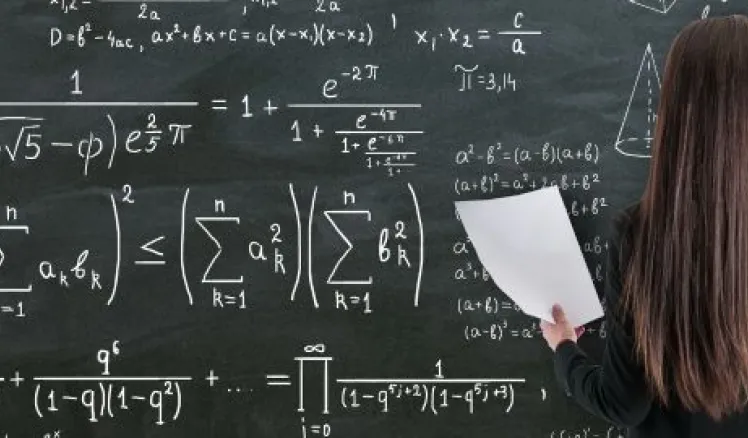 2a
2a
D=b²-4ac, ax²+bx+c=a(x-x₁)(x-x₂)
x₁·x₂=c/a
π=3,14
1/(√5-φ)e^(2/5 π) = 1 + e^(-2π)/(1 + e^(-4π)/(1 + e^(-6π)/(1+
a²-b²=(a-b)(a+b)
(a+b)²=a²+2ab+b²
b+b²
(∑_(k=1)^n a_k b_k)² ≤ (∑_(k=1)^n a_k²)(∑_(k=1)^n b_k²)
a²
ab+
a³+b
(a+b)=a
(a-b)³=a³
+b
+ q⁶/((1-q)(1-q²)) + ... = ∏_(j=0)^∞ 1/((1-q^(5j+2))(1-q^(5j+3))),